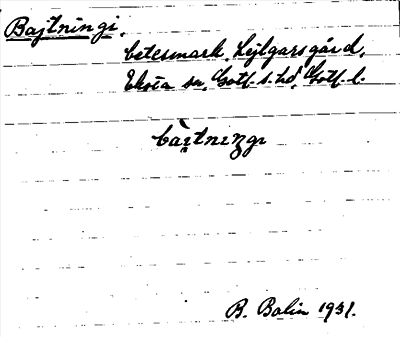 Bajtningi.
betesmark, Lejlgarsgård,
Eksta sn, Gotl. s. hd, Gotl. l.
bài̯tniŋgi
B. Bolin 1931.